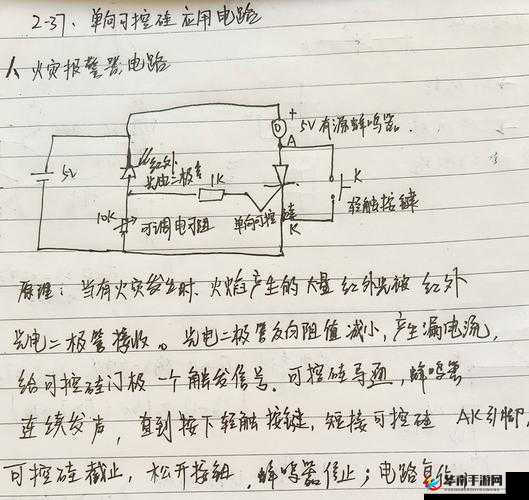 2-37、单向可控硅应用电路
1、火灾报警器电路
+
5V有源蜂鸣器.
A
5V
红外
光电二极管
1K
K
轻触按键
10K
可调电阻
单向可控硅
K
原理：当有火灾发生时、火焰产生的大量红外光被红外
光电二极管接收。光电二极管反向阻值减小,产生漏电流,
给可控硅门极一个触发信号.可控硅导通,蜂鸣器
连续发声,直到按下轻触按键,短接可控硅 AK引脚,
可控硅截止,松开按钮,蜂鸣器停止;电路复位
华南手游网